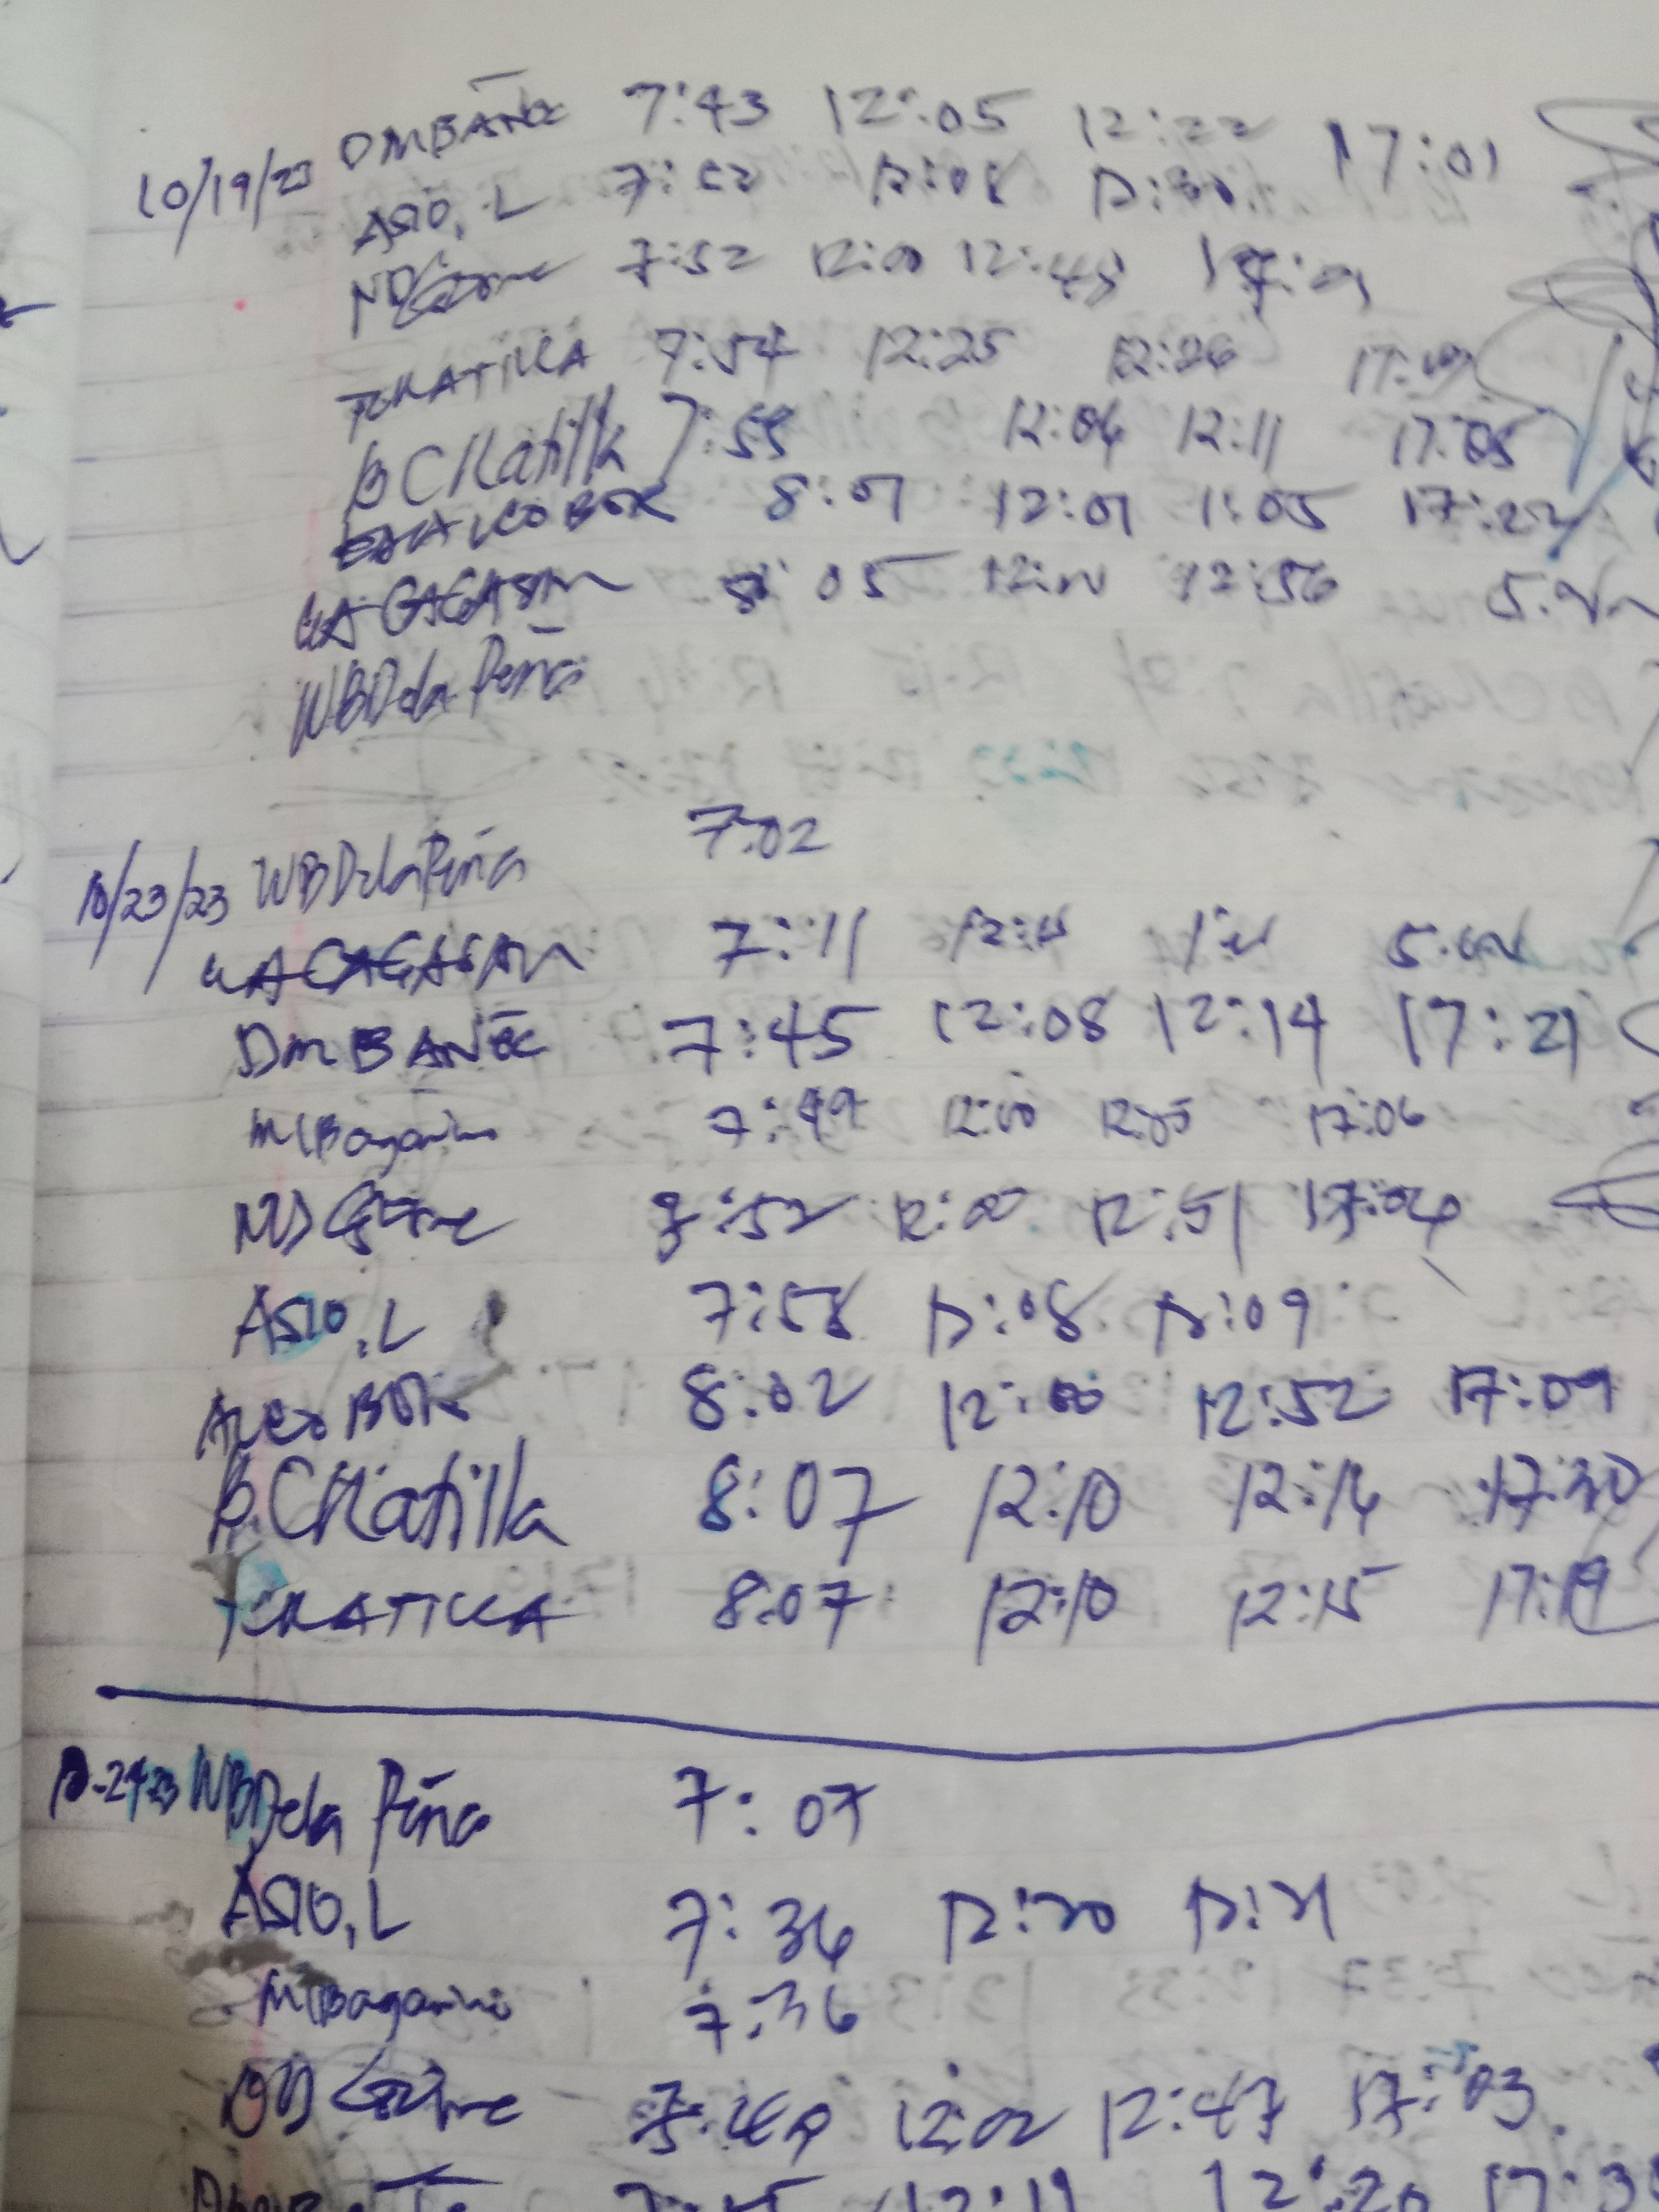 10/19/23 DMBAÑEZ 7:43 12:05 12:22 17:01
ASIO, L 7:52 12:08 12:30
ND 7:52 12:00 12:45 17:01
TCRATILLA 7:54 12:25 12:26 17:
B C Ratilla 7:55 12:04 12:11 17:05
ALCOBOR 8:01 12:01 1:05 17:22
LACAGASAN 8:05 12:56
WBDela Peña
10/23/23 WBDelaPeña 7:02
LACAGASAN 7:11
DMBAÑEZ 7:45 12:08 12:14 17:21
MCBagarino 7:49 12:00 12:05 17:06
ND 7:52 12:00 12:51 17:04
ASIO, L 7:58 12:08 12:09
ALCOBOR 8:02 12:00 12:52 17:09
B.CRatilla 8:07 12:10 12:14 17:30
TCRATILLA 8:07 12:10 12:15 17:19
10-24-23 WBDela Peña 7:07
ASIO, L 7:36 12:20 12:21
MCBagarino 7:36
12:02 12:47 17:03
12:20